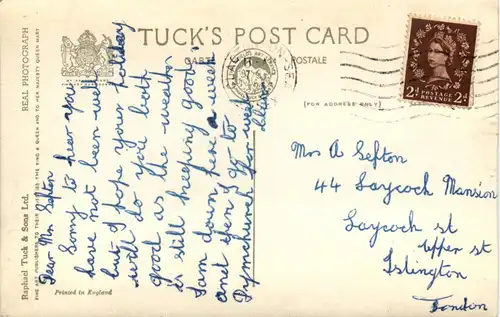 TUCK'S POST CARD
CARTE POSTALE
(FOR ADDRESS ONLY)
REAL PHOTOGRAPH
Raphael Tuck & Sons Ltd.
FINE ART PUBLISHERS TO THEIR MAJESTIES THE KING & QUEEN AND TO HER MAJESTY QUEEN MARY
Printed in England
POSTAGE
REVENUE
2d 2d
Dear Mrs Sefton
Sorry to hear you
have not been well
but I hope your holiday
will do you both
good as the weather
is still keeping good.
I am down here a week
and then I go to
Dymchurch for week
Mrs A Sefton
44 Laycock Mansion
Laycock st
Upper st
Islington
London